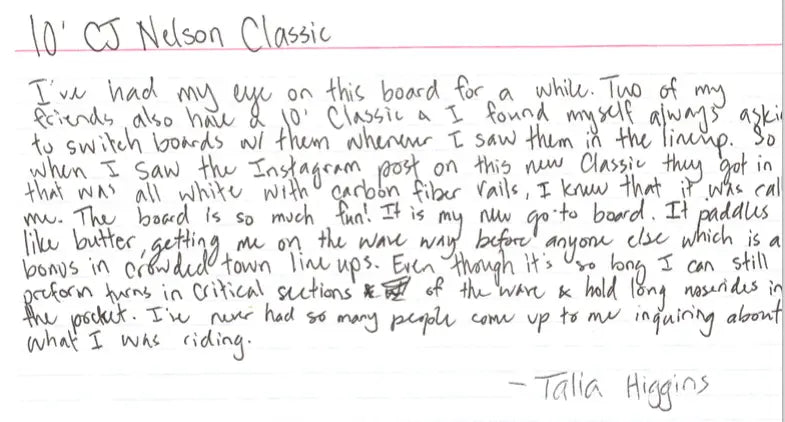 10' CJ Nelson Classic
I've had my eye on this board for a while. Two of my
friends also have a 10' Classic & I found myself always aski
to switch boards w/ them whenever I saw them in the lineup. So
when I saw the Instagram post on this new Classic they got in
that was all white with carbon fiber rails, I knew that it was cal
me. The board is so much fun! It is my new go-to board. It paddles
like butter, getting me on the wave way before anyone else which is a
bonus in crowded town line ups. Even though it's so long I can still
preform turns in critical sections of the wave & hold long noserides in
the pocket. I've never had so many people come up to me inquiring about
what I was riding.
- Talia Higgins